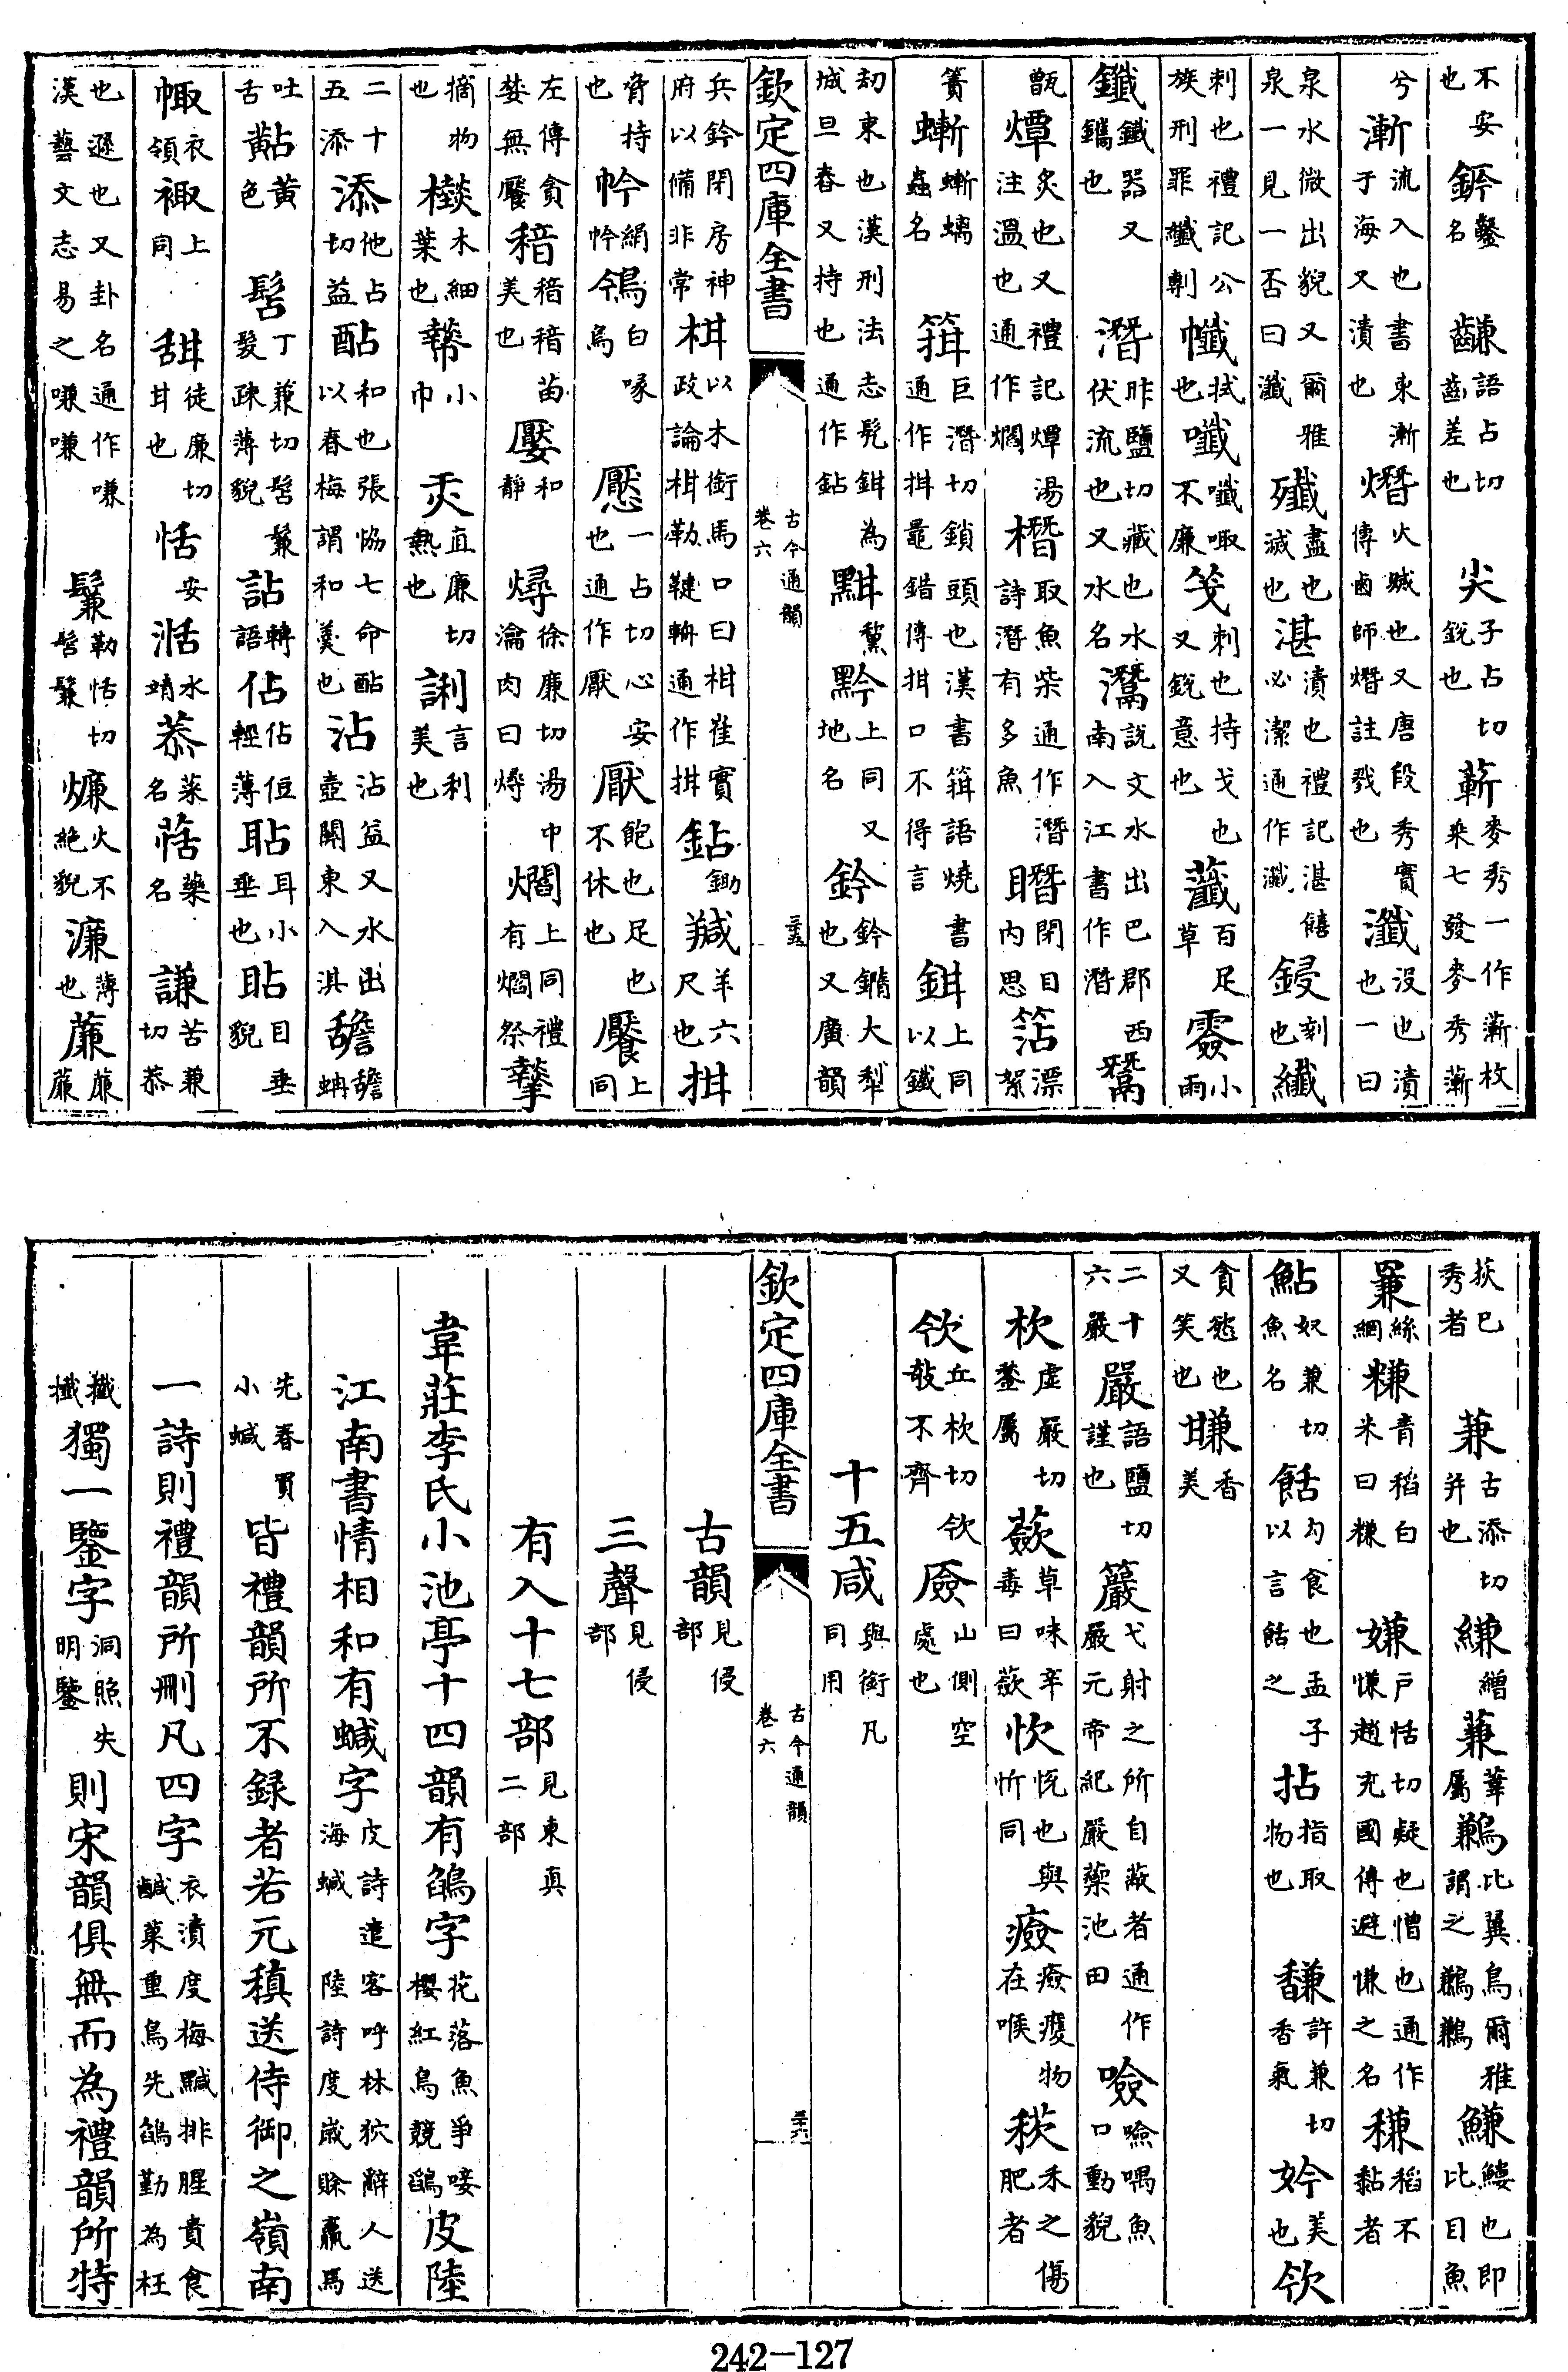 不安也 䶢語占切齒差也 尖子占切銳也 蔪麥秀一作漸枚乘七發麥秀蔪
兮 漸流入也書東漸于海又漬也 熸火滅也又唐段秀實傳鹵師熸註戮也 瀸沒也漬也一曰
泉水微出貌又爾雅泉一見一否曰瀸 殲盡也滅也 湛漬也禮記湛饎必潔通作瀸 鋟刻也 纖
刺也禮記公族刑罪纖剸 㡨拭也 嚵嚵㖩不廉 刺也持戈也又銳意也 虃百足草 小雨
鑯鐵器又鑴也 潛昨鹽切藏也水伏流也又水名 灊說文水出巴郡西南入江書作潛 鬵
甑 燂炙也又禮記燂湯注溫也通作爓 橬取魚柴通作潛詩潛有多魚 閉目內思 漂絮
簀 螹螹螭蟲名 箝巨潛切鎖頭也漢書箝語燒書通作拑鼂錯傳拑口不得言 鉗上同以鐵
刧束也漢刑法志髡鉗為城旦舂又持也通作鉆 黚黧 黔上同又地名 鈐鈐䥯大犂也又廣韻
欽定四庫全書 古今通韻 卷六 三五
兵鈐閉房神府以備非常 柑以木銜馬口曰柑崔實政論柑勒鞬輈通作拑 鉆鋤 羬羊六尺也 拑
脅持也 㡇絹㡇 鳹白喙鳥 懕一占切心安也通作厭 厭飽也足也不休也 饜上同
左傳貪婪無饜 苗美也 嬮和靜 燖徐廉切湯中瀹肉曰燖 爓上同禮有爓祭
摘物也 木細葉也 小巾 炎直廉切熱也 言利美也
二十五添 添他占切益 酟和也張協七命酟以春梅謂和羹也 沾沾益又水出壺關東入淇
吐舌 黇黃色 髻丁兼切髻鬑髮疎薄貌 詀轉語 佔佔侸輕薄 聑耳小垂也 貼目垂貌
㡇衣領 上同 甜徒廉切甘也 恬安 湉水靖 菾菜名 藥名 謙苦兼切恭
也遜也又卦名通作嗛漢藝文志易之嗛嗛 鬑勒恬切髻鬑 熑火不絕貌 濂薄也 薕薕
荻已秀者 兼古添切幷也 縑繒 蒹葦屬 鶼比翼鳥爾雅謂之鶼鶼 鰜鰜也即比目魚
絲綱 糠青稻白米曰糠 嫌戶恬切疑也憎也通作慊趙充國傳避慊之名 稴稻不黏者
鮎奴兼切魚名 餂勾食也孟子以言餂之 拈指取物也 馦許兼切香氣 妗美也 欦
貪慾也又笑也 香美
二十六嚴 嚴語鹽切謹也 籬弋射之所自蔽者通作嚴元帝紀嚴籞池田 噞噞喁魚口動貌
杴虛嚴切鍫屬 蘞草味辛毒曰蘞 忺悅也與忻同 瘀瘦物在喉 禾之傷肥者
欦丘杴切欦㪉不齊 㕒山側空處也
十五咸與銜凡同用
欽定四庫全書 古今通韻 卷六 三六
古韻見侵部
三聲見侵部
有入十七部見東真二部
韋莊李氏小池亭十四韻有鵮字花落魚爭唼櫻紅鳥競鵮皮陸
江南書情相和有㺂字皮詩遣客呼林狖辭人送海㺂陸詩度歲賒羸馬
先春買小㺂皆禮韻所不録者若元稹送侍御之嶺南
一詩則禮韻所刪凡四字衣漬度梅黬排腥貴食鹹菓重鳥先鵮勤為枉
攕攕獨一鑒字洞照失明鑒則宋韻俱無而為禮韻所特
242—127